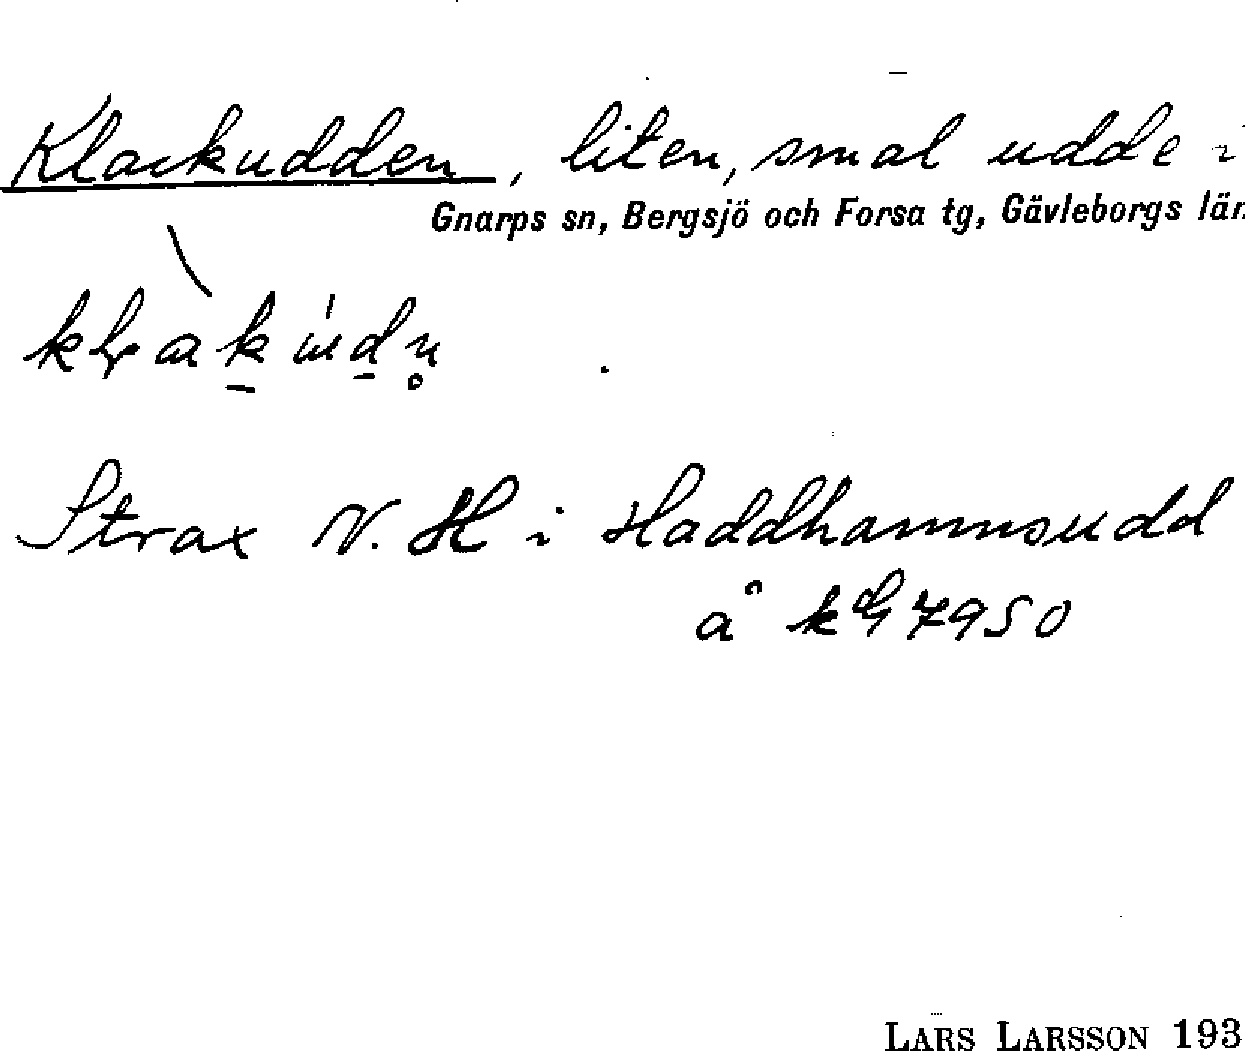 Klackudden, liten, smal udde i
Gnarps sn, Bergsjö och Forsa tg, Gävleborgs län
Strax N. H i Haddhamnsudd
å kbl 7950
LARS LARSSON 193